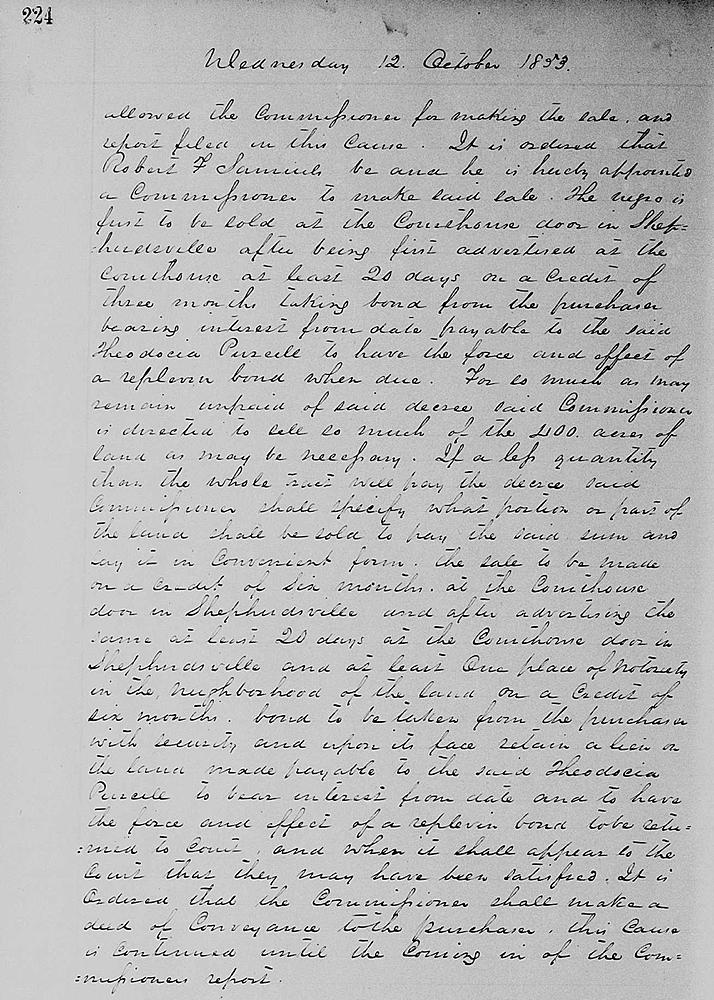 224
Wednesday 12. October 1853.
allowed the Commissioner for making the sale, and
report filed in this Cause. It is ordered that
Robert F Samuels be and he is hereby appointed
a Commissioner to make said sale. The negro is
first to be sold at the Courthouse door in Shep=
:herdsville after being first advertised at the
Courthouse at least 20 days on a Credit of
three months taking bond from the purchaser
bearing interest from date payable to the said
Theodocia Purcell to have the force and effect of
a replevin bond when due. For so much as may
remain unpaid of said decree said Commissioner
is directed to sell so much of the 400. acres of
land as may be necessary. If a less quantity
than the whole tract will pay the decree said
Commissioner shall specify what portion or part of
the land shall be sold to pay the said sum and
lay it in Convenient form. the sale to be made
on a Credit of Six months. at the Courthouse
door in Shepherdsville and after advertising the
same at least 20 days at the Courthouse door in
Shepherdsville and at least One place of Notoriety
in the, Neighborhood of the land on a Credit of
six months. bond to be taken from the purchaser
with security and upon its face retain a lien on
the land made payable to the said Theodocia
Purcell to bear interest from date and to have
the force and effect of a replevin bond to be retu=
:rned to Court, and when it shall appear to the
Court that they may have been satisfied. It is
Ordered that the Commissioner shall make a
deed of Conveyance to the purchaser, this Cause
is Continued until the Coming in of the Com=
:missioners report.